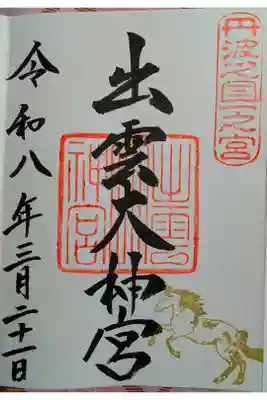 丹波之國一之宮
出雲大神宮
出雲神宮
令和八年三月二十一日